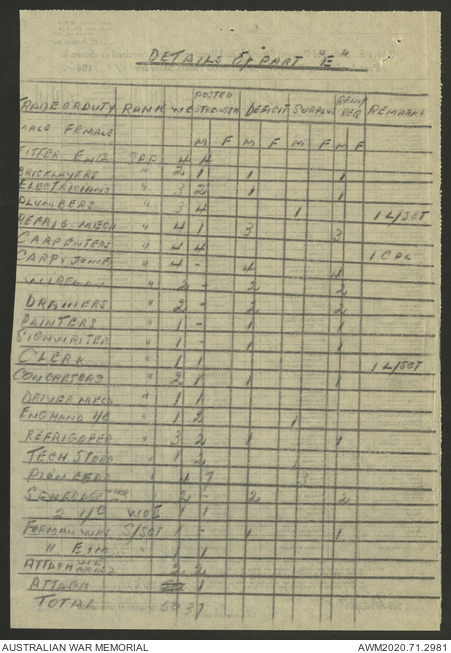 DETAILS of PART "E"
POSTED REINF
TRADE OR DUTY RANK WE STRENGTH DEFICIT SURPLUS REQ REMARKS
MALE FEMALE M F M F M F M F
FITTER ENG SPR 4 4
BRICKLAYERS " 2 1 1 1
ELECTRICIANS " 3 2 1 1
PLUMBERS " 3 4 1 1 L/SGT
REFRIG. MECH " 4 1 3 3
CARPENTERS " 4 4 1 CPL
CARP & JOINER " 4 - 4 4
" 2 - 2 2
DRAINERS " 2 - 2 2
PAINTERS " 1 - 1 1
SIGNWRITER " 1 - 1 1
CLERK " 1 1 1 L/SGT
CONCRETORS " 2 1 1 1
DRIVER MECH " 1 1
ENGHAND I/C " 1 2 1
REFRIG OPER " 3 2 1 1
TECH STORE " 1 2 1
PIONEERS " 4 7 3
" 2 - 2 2
2 I/C WO I 1 1
FORMAN WKS S/SGT 1 - 1 1
" E & M " 1 1
ATTACH 2 2
ATTACH 1
TOTAL 37
AUSTRALIAN WAR MEMORIAL AWM2020.71.2981